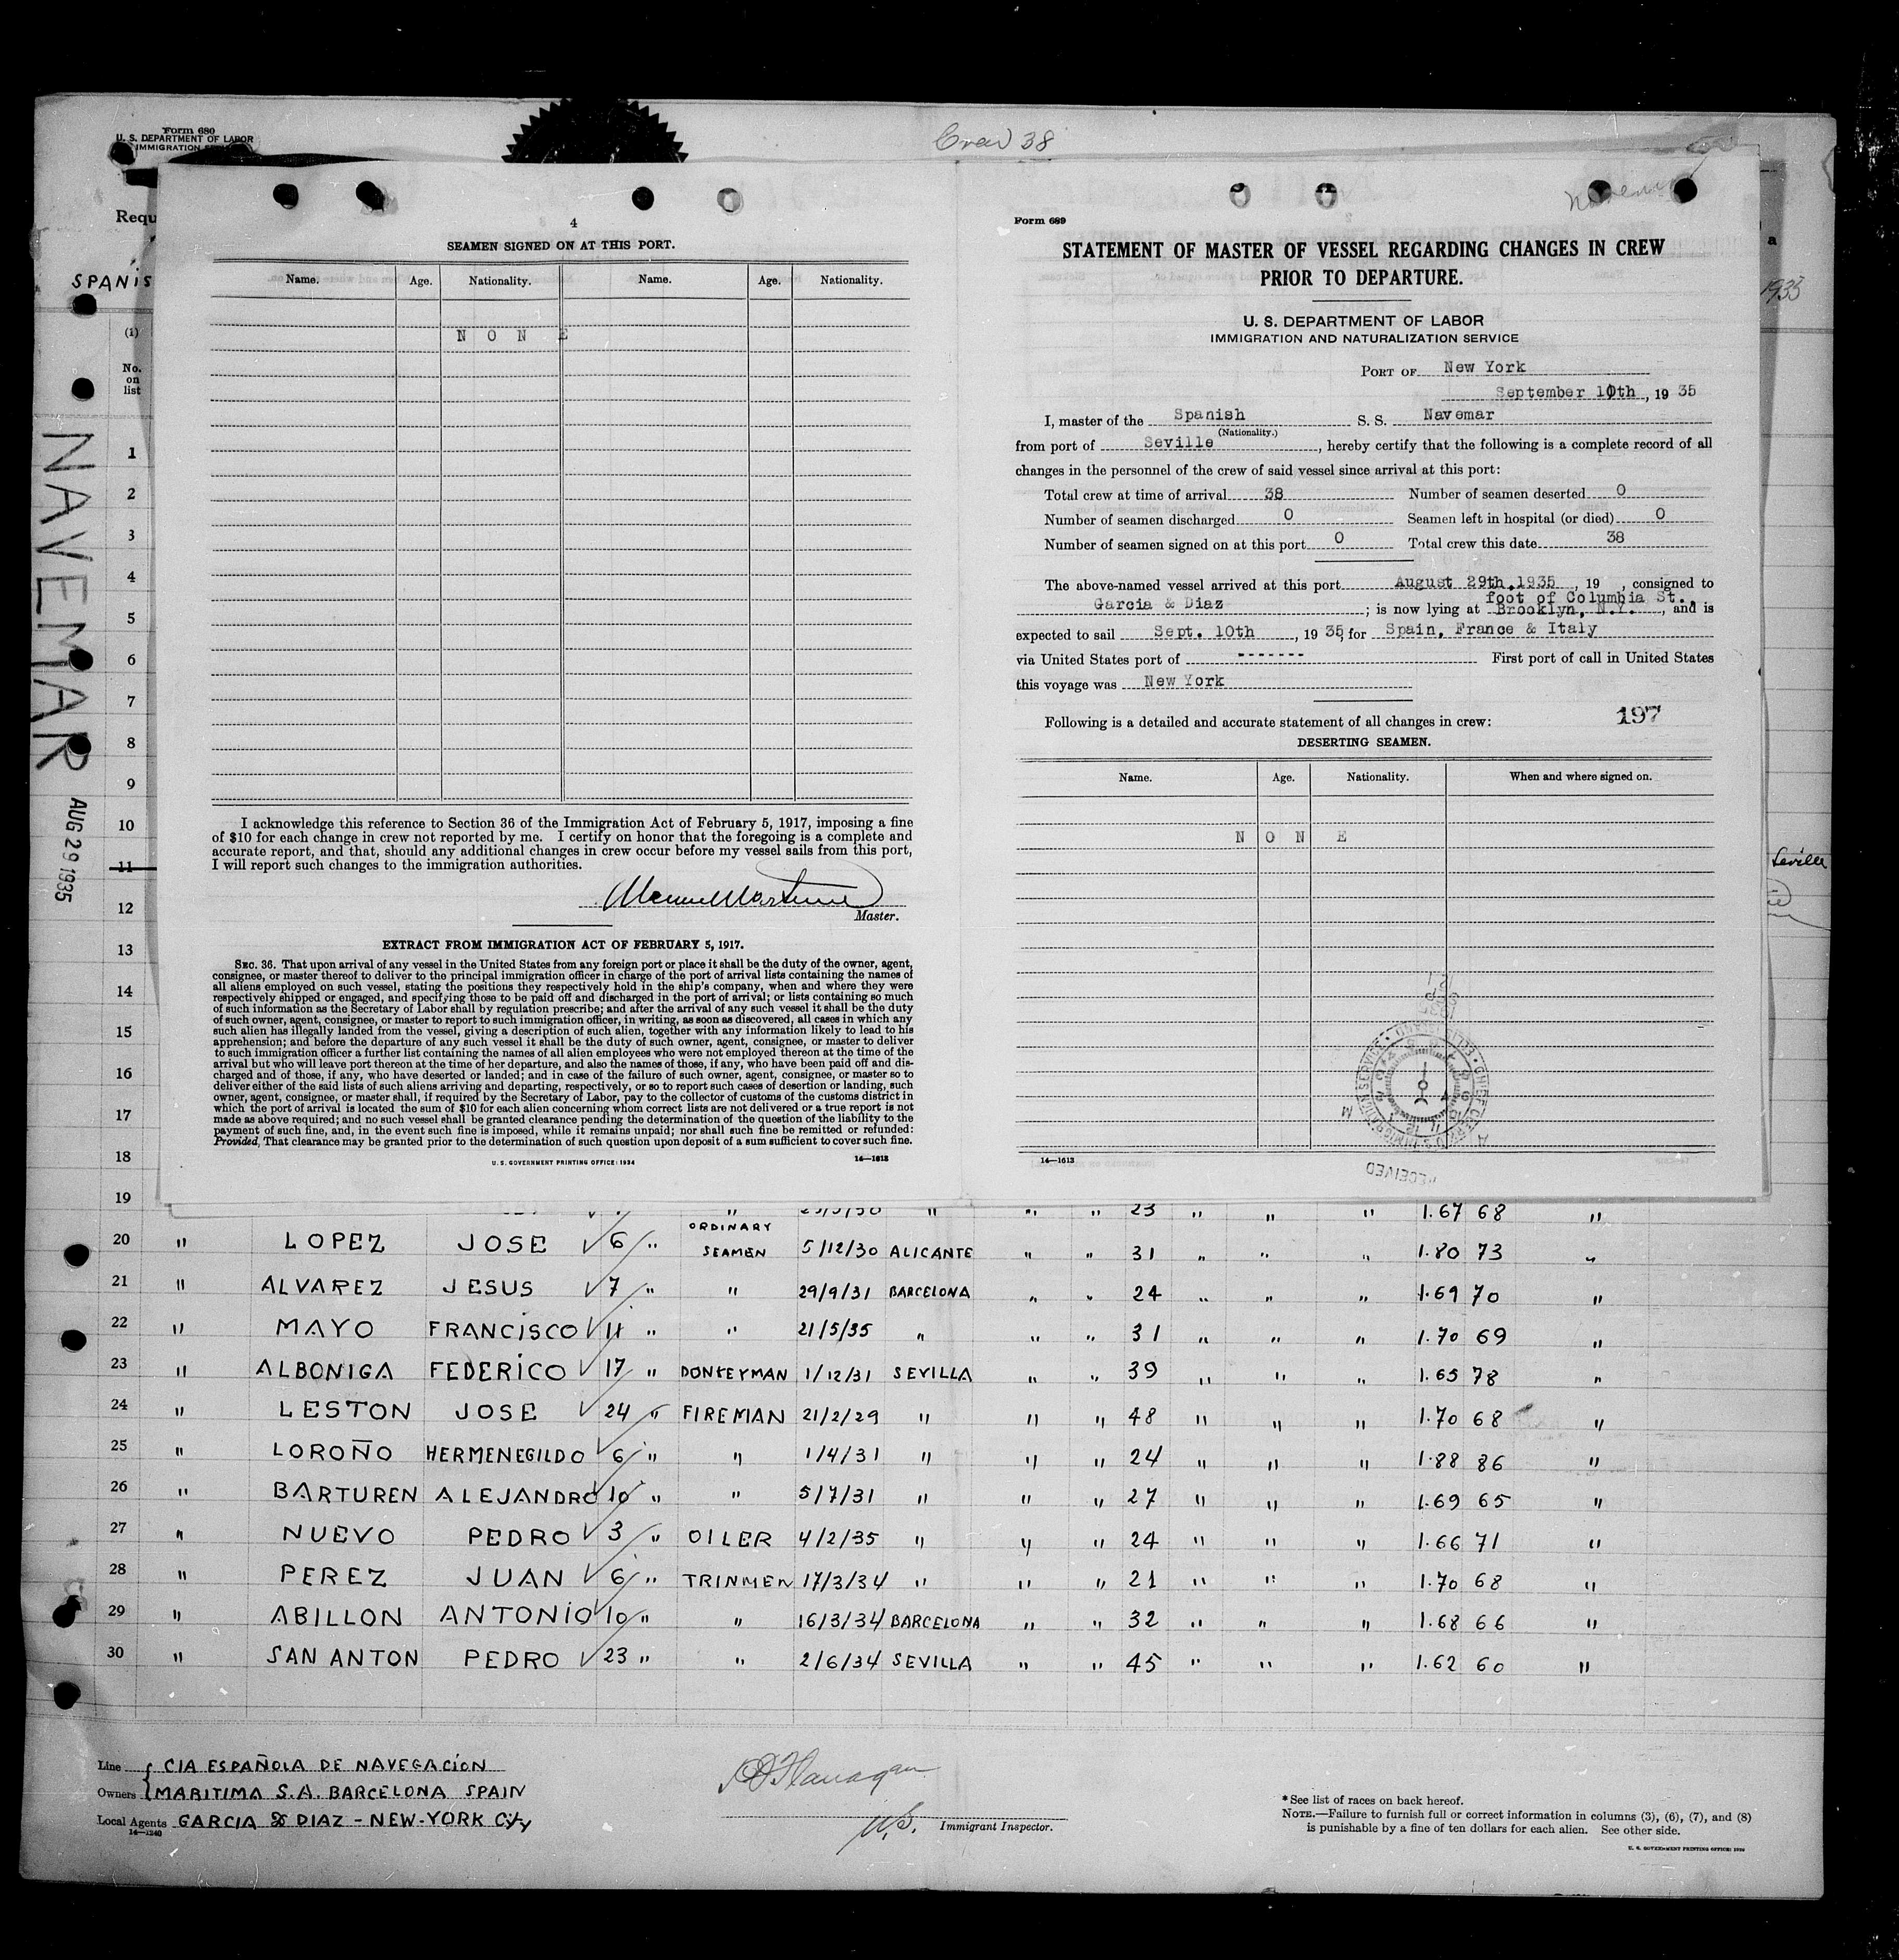 Form 680
U. S. DEPARTMENT OF LABOR
IMMIGRATION
Crew 38
Requ
SPANIS
1935
a
(1)
No.
on
list
NAVEMAR
AUG 29 1935
1
2
3
4
5
6
7
8
9
10
11
12
13
14
15
16
17
18
19
Sevilla
4
SEAMEN SIGNED ON AT THIS PORT.
Name. Age. Nationality. Name. Age. Nationality.
N O N E
I acknowledge this reference to Section 36 of the Immigration Act of February 5, 1917, imposing a fine
of $10 for each change in crew not reported by me. I certify on honor that the foregoing is a complete and
accurate report, and that, should any additional changes in crew occur before my vessel sails from this port,
I will report such changes to the immigration authorities.
Master.
EXTRACT FROM IMMIGRATION ACT OF FEBRUARY 5, 1917.
SEC. 36. That upon arrival of any vessel in the United States from any foreign port or place it shall be the duty of the owner, agent,
consignee, or master thereof to deliver to the principal immigration officer in charge of the port of arrival lists containing the names of
all aliens employed on such vessel, stating the positions they respectively hold in the ship's company, when and where they were
respectively shipped or engaged, and specifying those to be paid off and discharged in the port of arrival; or lists containing so much
of such information as the Secretary of Labor shall by regulation prescribe; and after the arrival of any such vessel it shall be the duty
of such owner, agent, consignee, or master to report to such immigration officer, in writing, as soon as discovered, all cases in which any
such alien has illegally landed from the vessel, giving a description of such alien, together with any information likely to lead to his
apprehension; and before the departure of any such vessel it shall be the duty of such owner, agent, consignee, or master to deliver
to such immigration officer a further list containing the names of all alien employees who were not employed thereon at the time of the
arrival but who will leave port thereon at the time of her departure, and also the names of those, if any, who have been paid off and dis-
charged and of those, if any, who have deserted or landed; and in case of the failure of such owner, agent, consignee, or master so to
deliver either of the said lists of such aliens arriving and departing, respectively, or so to report such cases of desertion or landing, such
owner, agent, consignee, or master shall, if required by the Secretary of Labor, pay to the collector of customs of the customs district in
which the port of arrival is located the sum of $10 for each alien concerning whom correct lists are not delivered or a true report is not
made as above required; and no such vessel shall be granted clearance pending the determination of the question of the liability to the
payment of such fine, and, in the event such fine is imposed, while it remains unpaid; nor shall such fine be remitted or refunded:
Provided, That clearance may be granted prior to the determination of such question upon deposit of a sum sufficient to cover such fine.
U. S. GOVERNMENT PRINTING OFFICE: 1934 14—1613
Form 689
STATEMENT OF MASTER OF VESSEL REGARDING CHANGES IN CREW
PRIOR TO DEPARTURE.
U. S. DEPARTMENT OF LABOR
IMMIGRATION AND NATURALIZATION SERVICE
PORT OF New York
September 10th, 19 35
I, master of the Spanish S. S. Navemar
(Nationality.)
from port of Seville, hereby certify that the following is a complete record of all
changes in the personnel of the crew of said vessel since arrival at this port:
Total crew at time of arrival 38 Number of seamen deserted 0
Number of seamen discharged 0 Seamen left in hospital (or died) 0
Number of seamen signed on at this port 0 Total crew this date 38
The above-named vessel arrived at this port August 29th 1935, 19 , consigned to
foot of Columbia St.
Garcia & Diaz; is now lying at Brooklyn, N.Y., and is
expected to sail Sept. 10th, 19 35, for Spain, France & Italy
via United States port of ------- First port of call in United States
this voyage was New York
Following is a detailed and accurate statement of all changes in crew: 197
DESERTING SEAMEN.
Name. Age. Nationality. When and where signed on.
N O N E
RECEIVED
14—1613
" 23 " " " 1.67 68 "
20 " LOPEZ JOSE √ 6 " ORDINARY SEAMEN 5/12/30 ALICANTE " " 31 " " " 1.80 73 "
21 " ALVAREZ JESUS √ 7 " " 29/9/31 BARCELONA " " 24 " " " 1.69 70 "
22 " MAYO FRANCISCO √ 11 " " 21/5/35 " " " 31 " " " 1.70 69 "
23 " ALBONIGA FEDERICO √ 17 " DONKEYMAN 1/12/31 SEVILLA " " 39 " " " 1.65 78 "
24 " LESTON JOSE √ 24 " FIREMAN 21/2/29 " " " 48 " " " 1.70 68 "
25 " LOROÑO HERMENEGILDO √ 6 " " 1/4/31 " " " 24 " " " 1.88 86 "
26 " BARTUREN ALEJANDRO √ 10 " " 5/7/31 " " " 27 " " " 1.69 65 "
27 " NUEVO PEDRO √ 3 " OILER 4/2/35 " " " 24 " " " 1.66 71 "
28 " PEREZ JUAN √ 6 " TRINMEN 17/3/34 " " " 21 " " " 1.70 68 "
29 " ABILLON ANTONIO √ 10 " " 16/3/34 BARCELONA " " 32 " " " 1.68 66 "
30 " SAN ANTON PEDRO √ 23 " " 2/6/34 SEVILLA " " 45 " " " 1.62 60 "
Line CIA ESPAÑOLA DE NAVEGACION
Owners MARITIMA S.A. BARCELONA SPAIN
Local Agents GARCIA & DIAZ - NEW-YORK City
14—1240
Flanagan
Immigrant Inspector.
* See list of races on back hereof.
NOTE.—Failure to furnish full or correct information in columns (3), (6), (7), and (8)
is punishable by a fine of ten dollars for each alien. See other side.